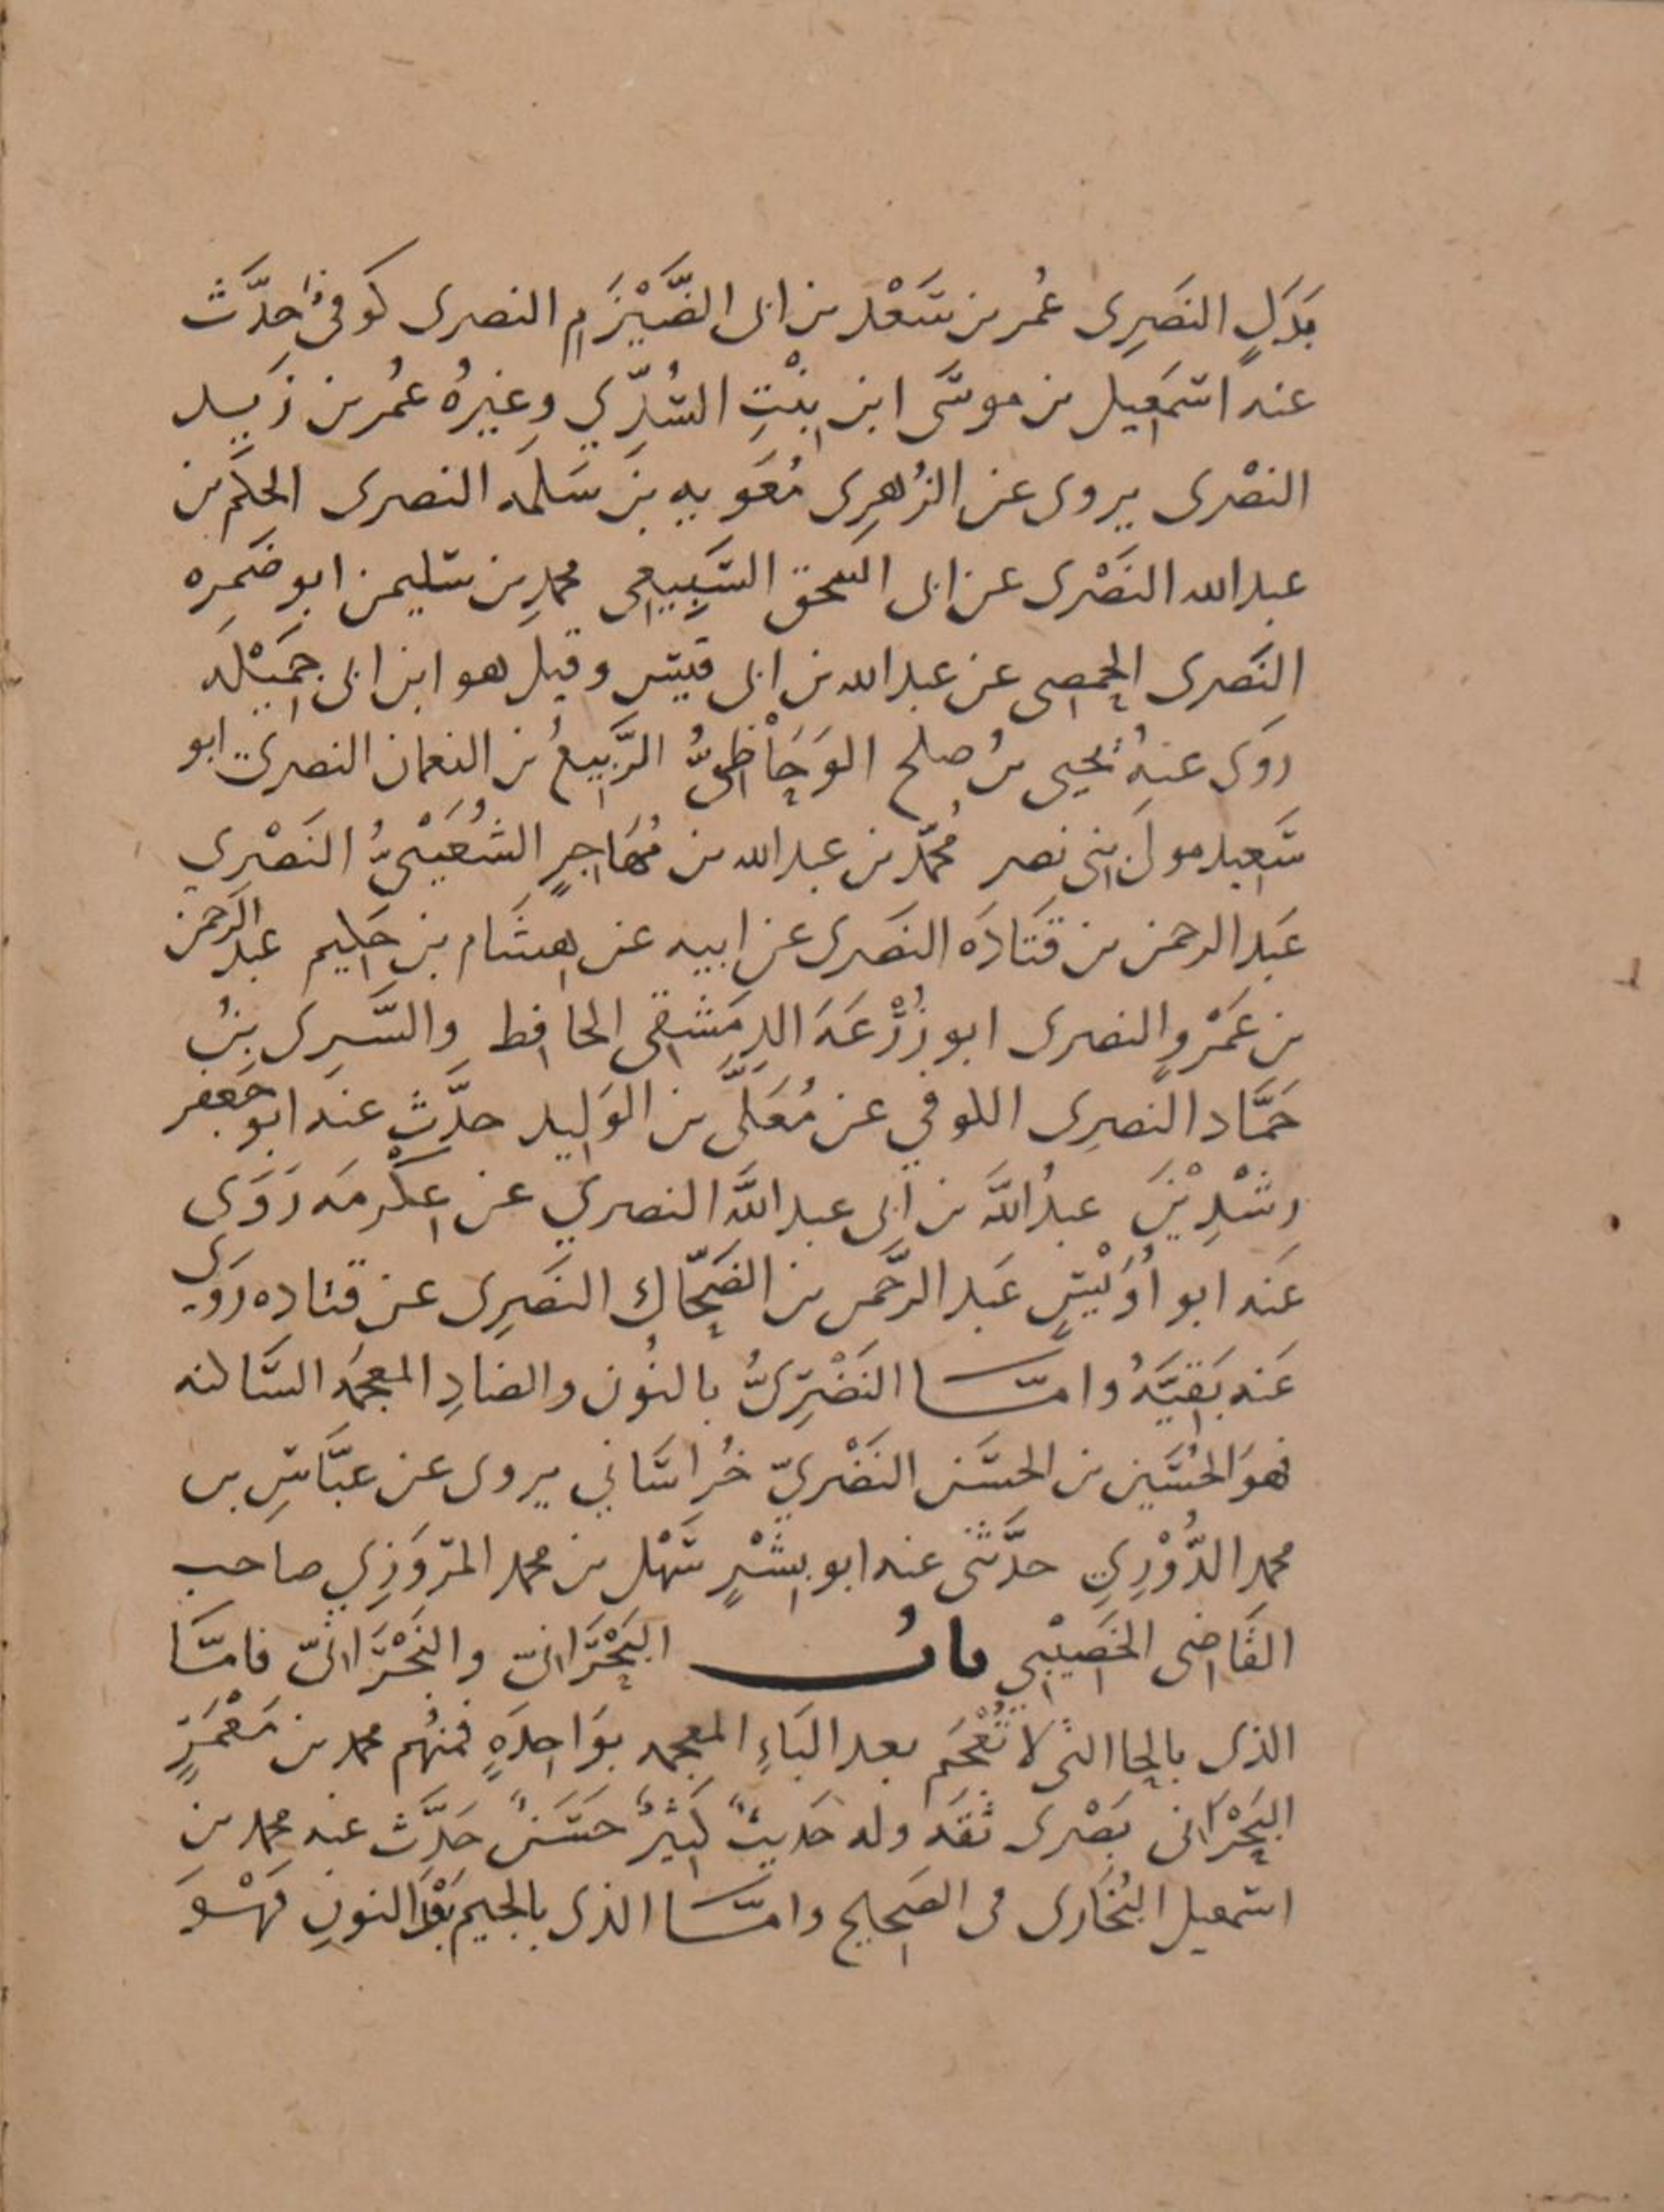 بَدَلٍ النَصرِى عُمر بن سَعْد بن ابى الضَّيْزَمِ النصرى كوفىٌ حدَّث
عنه اسمعِيل بن موسَى ابن بِنْتِ السُّدِّي وغيرُه عمُر بن زيد
النصْرى يروى عن الزُهرِى مُعَويه بن سَلمَه النصرى الحكَم بن
عبدالله النَصْرى عن ابى اسحق السَّبِيعِى محمد بن سليمن ابو ضَمره
النَصرى الحمصِى عن عبدالله بن ابى قيس وقيل هو ابن ابى جَمِيْلَه
روَى عنهُ يحيى بنُ صلح الوَحَاْظىُّ الرَّبيِعُ بن النعمان النصرى ابو
سَعِيد مولى بنى نصر مُحمّد بن عبدالله بن مُهَاجِرٍ الشُعَيْثىُّ النَصْرِي
عَبد الرحمن بن قَتَادَه النَصَرى عن ابيه عن هِشَام بن حَكِيم عبد الرَحمن
بن عَمْرٍو النصرى ابو زُرْعَهَ الدِمَشقِى الحافظ والسَّرِى بنُ
حَمَّاد النصرِى الكوفي عن مُعَلَّى بن الوَلِيد حدَّث عنه ابو جعفر
رِشْدِيْنَ عبدُ اللَّه بن ابى عبد اللَّه النصري عن عِكْرمَه رَوَى
عَنه ابو اُوَيْسٍ عَبد الرَّحمن بن الضَحّاك النَصَرِى عن قتاده رَوَى
عَنه بَقِيَّهُ وامّا النَضْرِىُّ بالنُون والضادِ المعجمَه السَّاكنه
فهوَ الحُسَين بن الحسَن النَضْريّ خُراسَاني يروى عن عبَّاسِ بن
محمد الدُّوْرِي حدَّثنى عنه ابو بِشْرٍ سَهْل بن محمد المَروَزِي صاحب
القَاضِى الخَصِيْبِي بابُ البَحْرَانىّ والنَجْرَانىّ فامَّا
الذى بالحا التى لا تُعْجَم بعد البَاءِ المعجمه بوَاحِدَهٍ فمنهُم محمد بن مَعْمَرٍ
البَحْرَانى بَصْرى ثقَه وله حَديثٌ كَثيرٌ حَسَنٌ حَدَّث عنه محمد بن
اسمعيل البُخَارى فى الصَحِيح وامَّا الذى بالجيم بَعْدَ النونِ فهْوَ